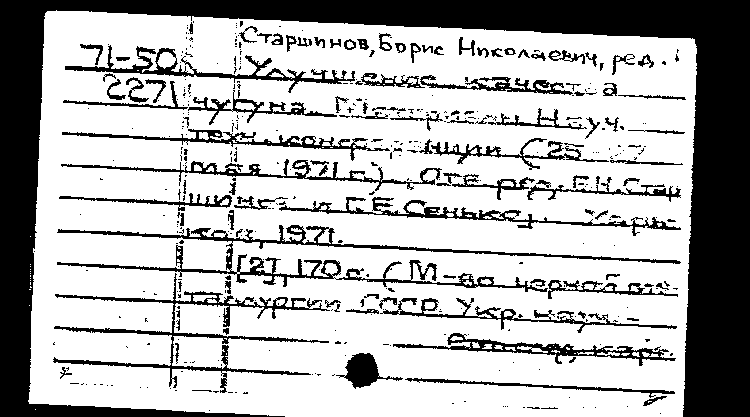 Старшинов, Борис Николаевич, ред.
71-50 Улучшение качества
2271 чугуна. Материалы Науч.
техн. конференции (25 27
мая 1971 г.). Отв. ред. Б.Н. Стар
шинов и Г.Е. Сенько. Харь-
ков, 1971.
[2], 170 с. (М-во черной ме-
таллургии СССР. Укр. науч.-
карт.